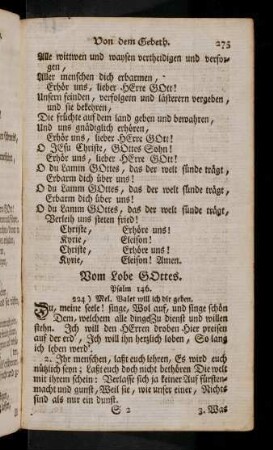 Von dem Gebeth. 275
Alle wittwen und waysen vertheidigen und versor-
gen,
Aller menschen dich erbarmen,
Erhör uns, lieber HErre GOtt!
Unsern feinden, verfolgern und lästerern vergeben,
und sie bekehren,
Die früchte auf dem land geben und bewahren,
Und uns gnädiglich erhören,
Erhör uns, lieber HErre GOtt!
O JEsu Christe, GOttes Sohn!
Erhör uns, lieber HErre GOtt!
O du Lamm GOttes, das der welt sünde trägt,
Erbarm dich über uns!
O du Lamm GOttes, das der welt sünde trägt,
Erbarm dich über uns!
O du Lamm GOttes, das der welt sünde trägt,
Verleih uns steten fried!
Christe, Erhöre uns!
Kyrie, Eleison!
Christe, Erhöre uns!
Kyrie, Eleison! Amen.
Vom Lobe GOttes.
Psalm 146.
224) Mel. Valet will ich dir geben.
Du, meine seele! singe, Wol auf, und singe schön
Dem, welchem alle dinge Zu dienst und willen
stehn. Ich will den HErren droben Hier preisen
auf der erd', Ich will ihn herzlich loben, So lang
ich leben werd'.
2. Ihr menschen, laßt euch lehren, Es wird euch
nützlich seyn; Laßt euch doch nicht bethören Die welt
mit ihrem schein: Verlasse sich ja keiner Auf fürsten-
macht und gunst, Weil sie, wie unser einer, Nichts
sind als nur ein dunst.
S 2 3. Was